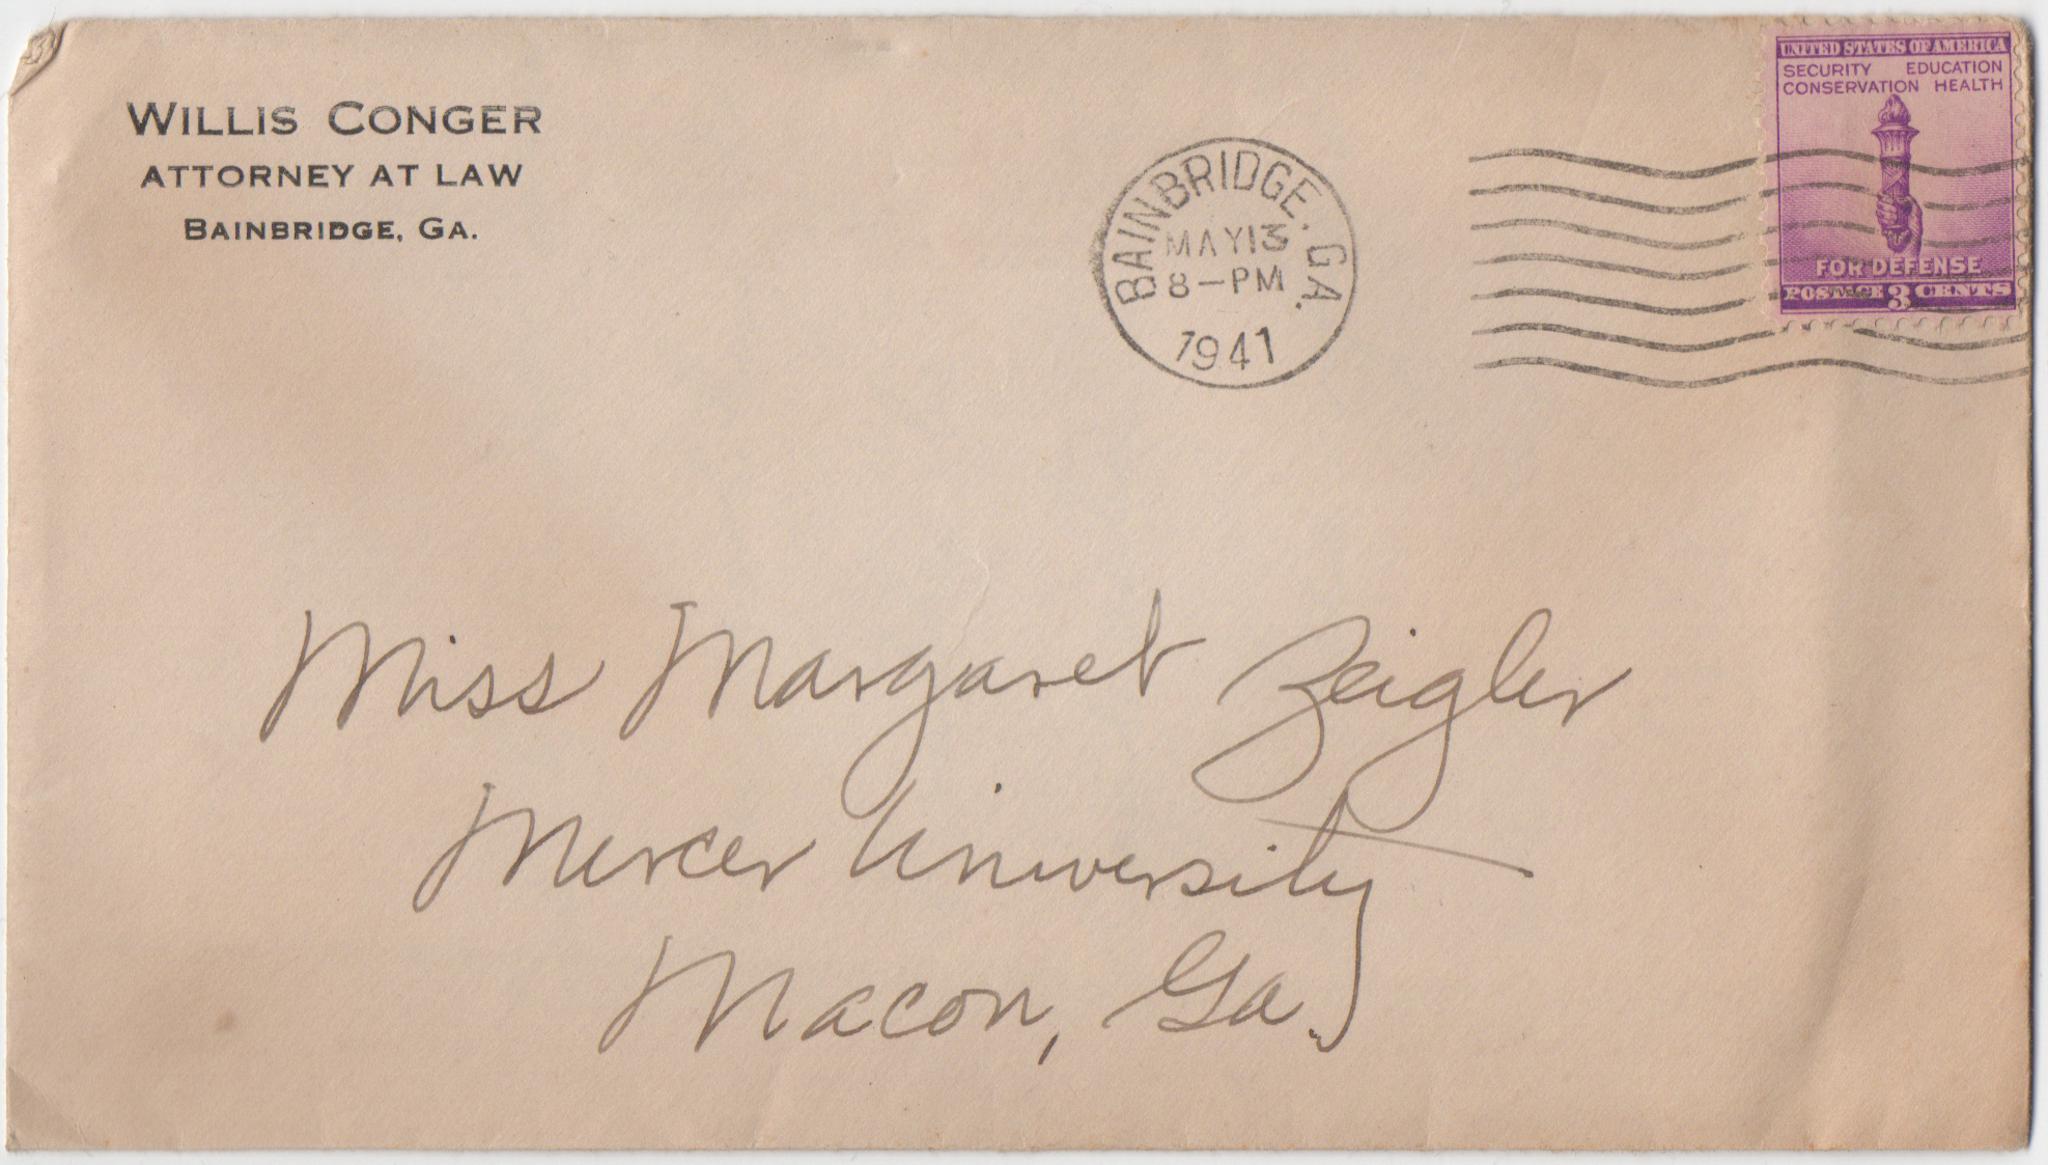 WILLIS CONGER
ATTORNEY AT LAW
BAINBRIDGE, GA.
BAINBRIDGE, GA.
MAY 13
8-PM
1941
UNITED STATES OF AMERICA
SECURITY EDUCATION
CONSERVATION HEALTH
FOR DEFENSE
POSTAGE 3 CENTS
Miss Margaret Zeigler
Mercer University
Macon, Ga.